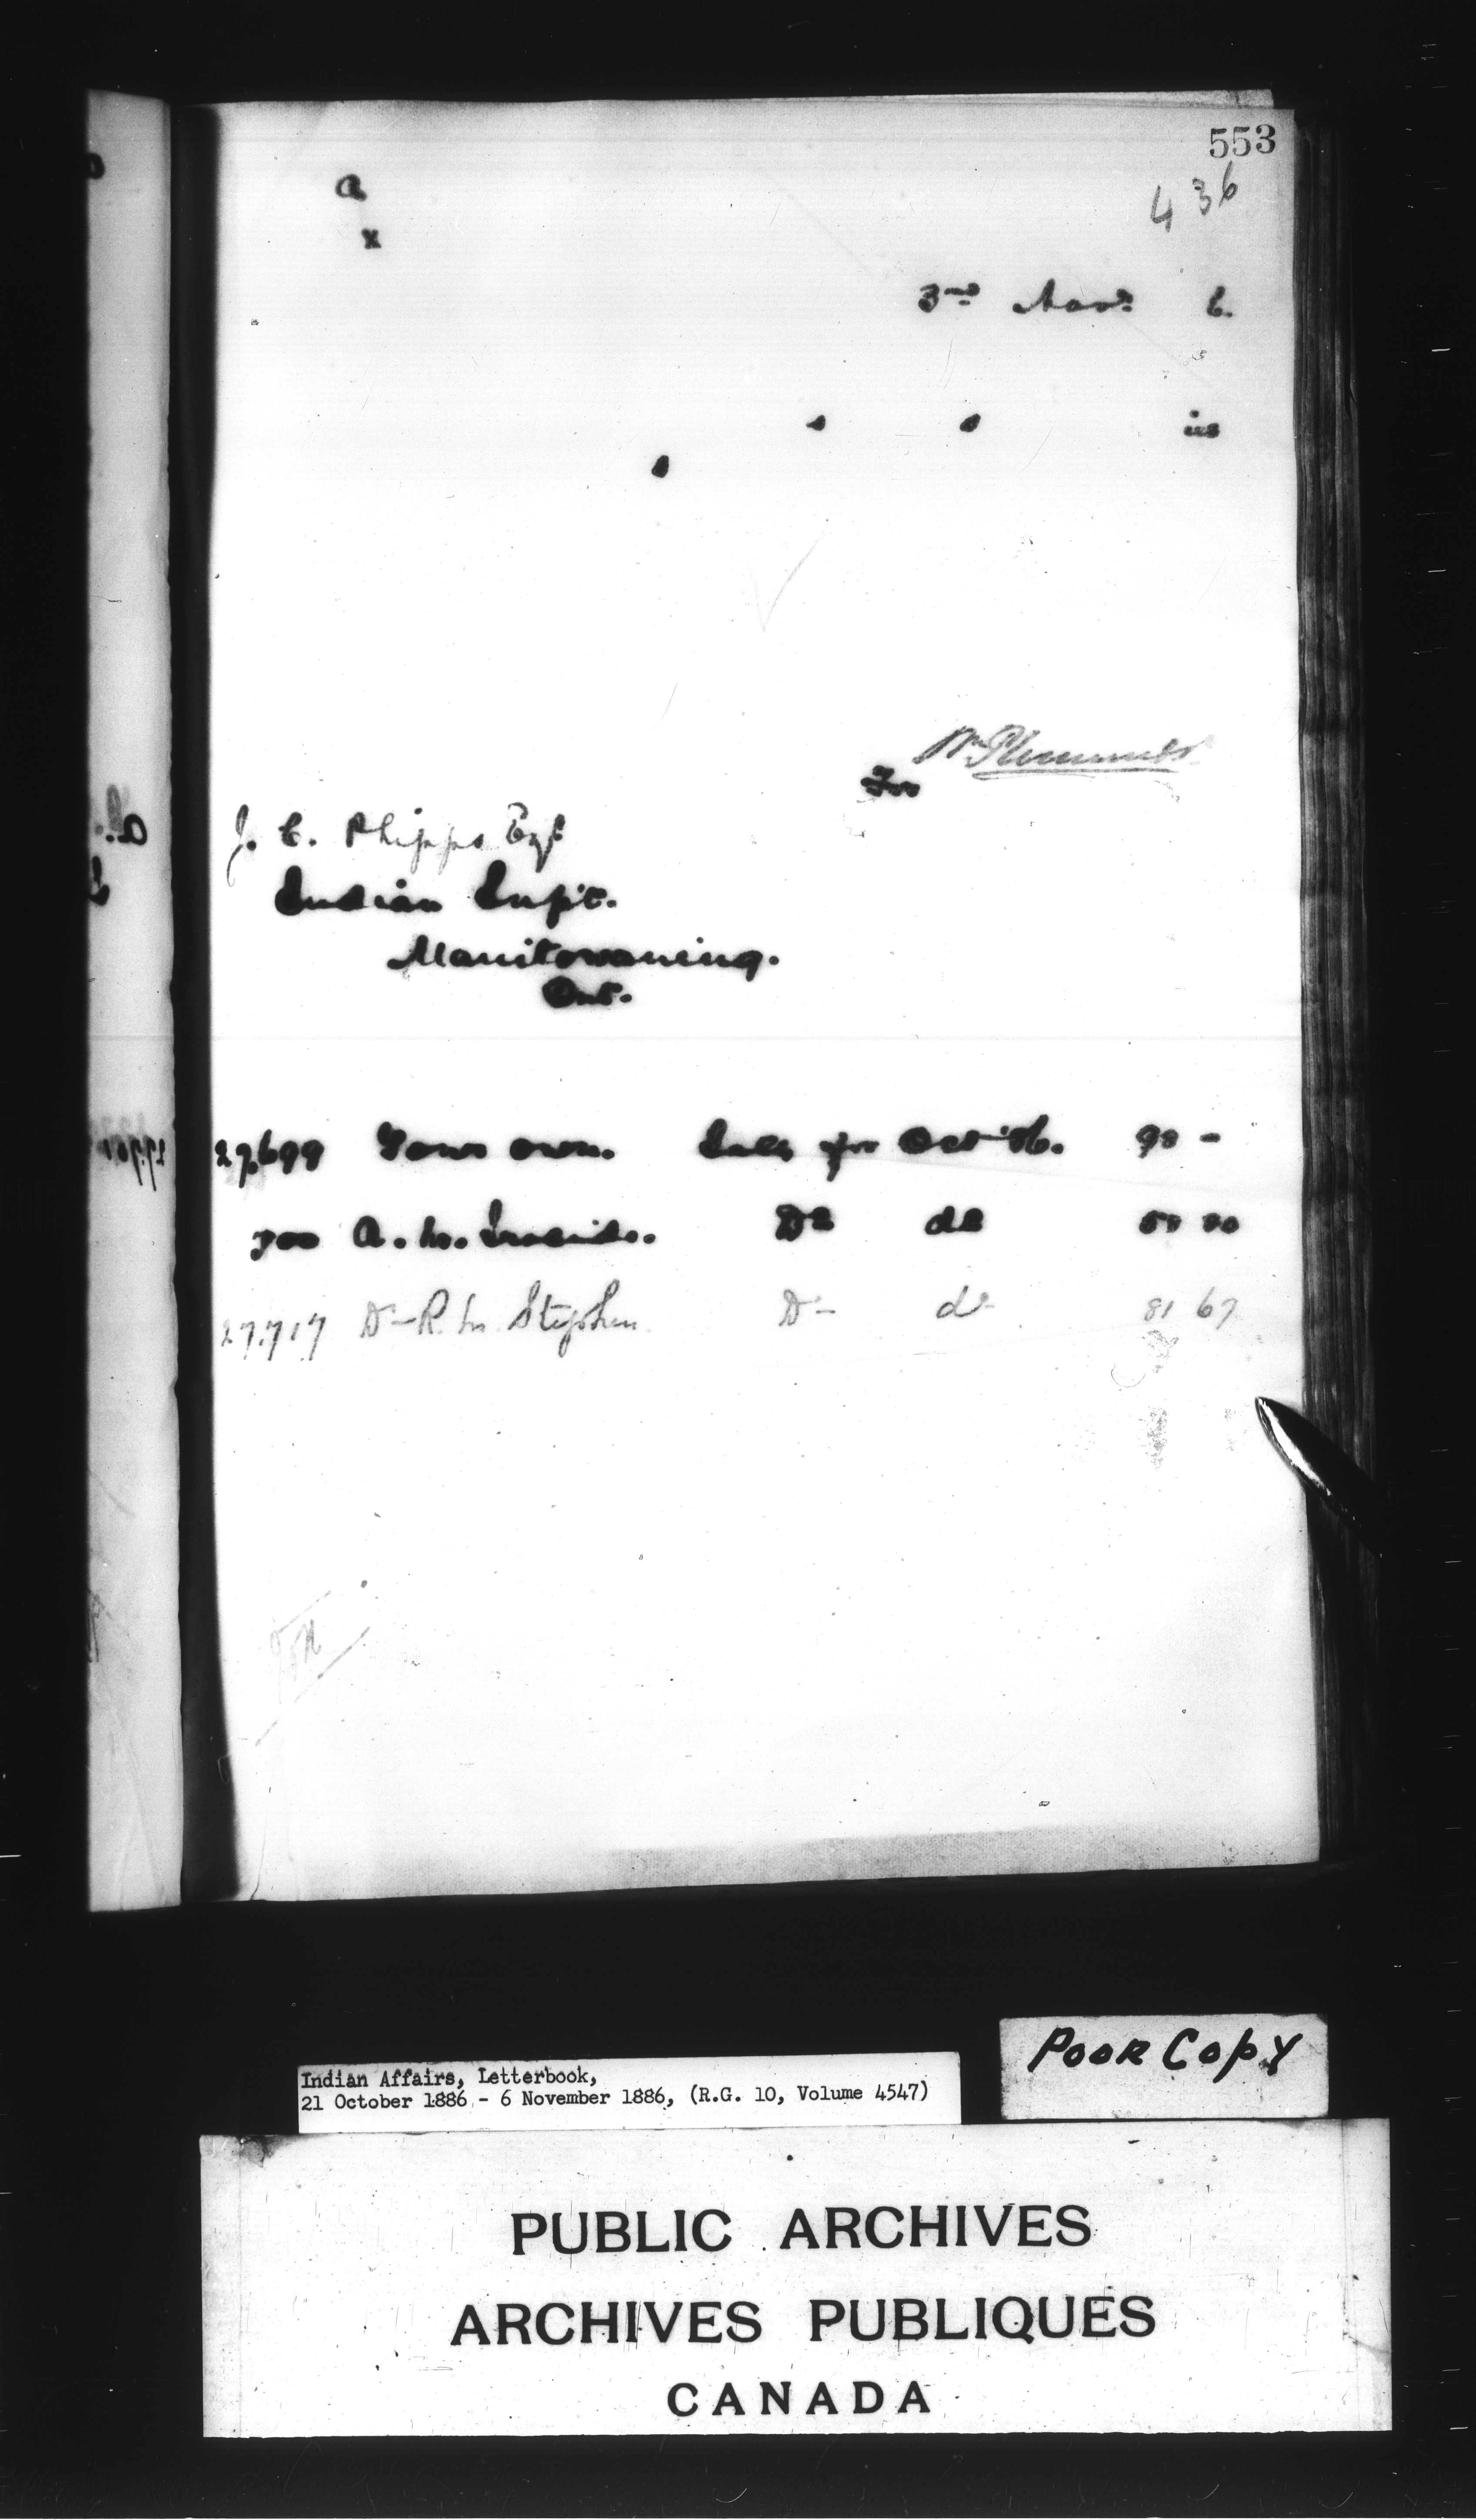 553
436
a
x
3rd Novr. 6.
s s ies
s
Wm Plummer
For
J. C. Phipps Esqr
Indian Supt.
Manitowaning.
Ont.
27.699 Your own. Saly for Oct '86. 98 -
700 A. M. Ironside. Do do
27.717 Dr R. M. Stephen Do do 81 67
Poor Copy
Indian Affairs, Letterbook,
21 October 1886 - 6 November 1886, (R.G. 10, Volume 4547)
PUBLIC ARCHIVES
ARCHIVES PUBLIQUES
CANADA